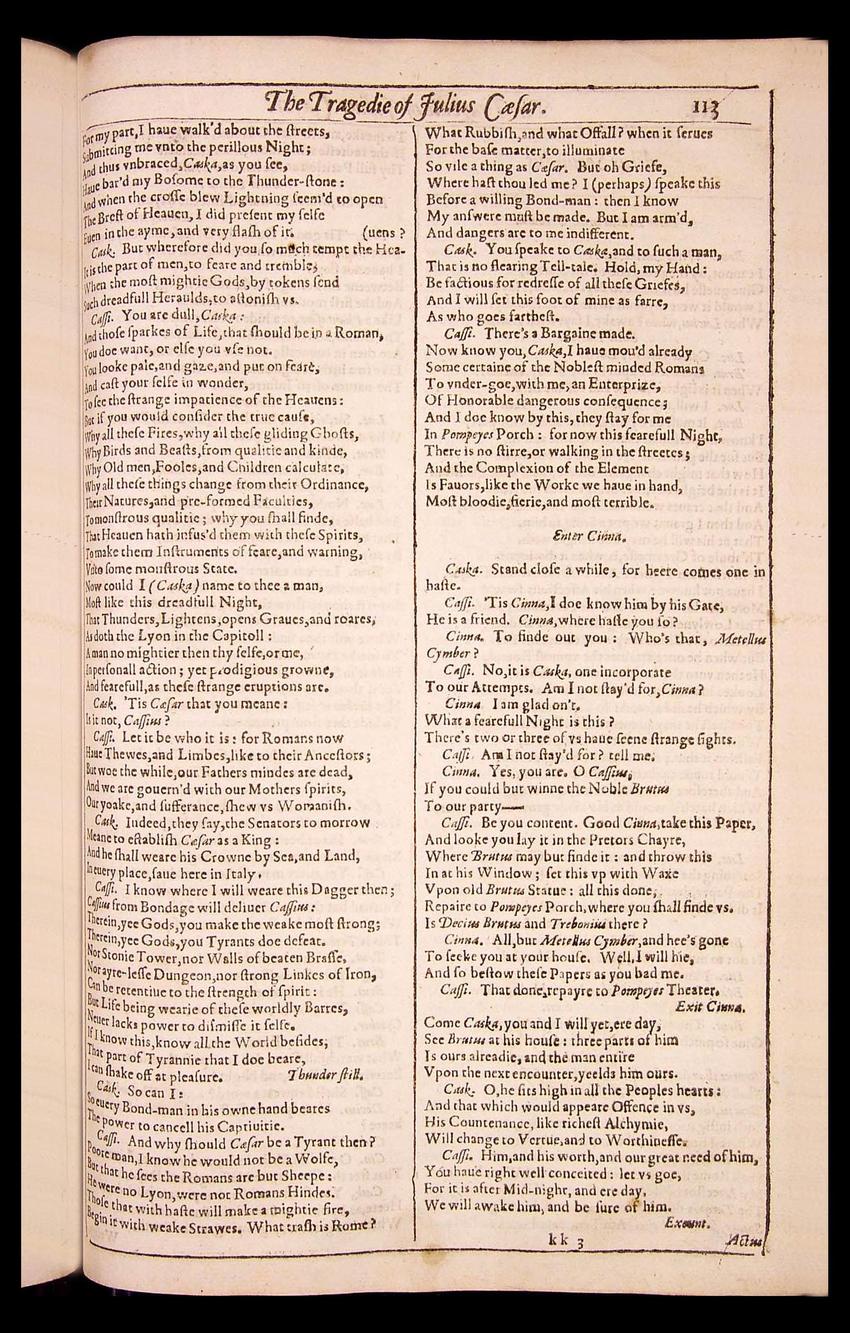 The Tragedie of Julius Cæsar. 113
For my part, I haue walk'd about the ſtreets,
Submitting me vnto the perillous Night;
And thus vnbraced, Caska, as you ſee,
Haue bar'd my Boſome to the Thunder-ſtone:
And when the croſſe blew Lightning ſeem'd to open
The Breſt of Heauen, I did preſent my ſelfe
Euen in the ayme, and very flaſh of it. (uens?
Cask. But wherefore did you ſo much tempt the Hea-
It is the part of men, to feare and tremble,
When the moſt mightie Gods, by tokens ſend
Such dreadfull Heraulds, to aſtoniſh vs.
Caſſi. You are dull, Caska:
And thoſe ſparkes of Life, that ſhould be in a Roman,
You doe want, or elſe you vſe not.
You looke pale, and gaze, and put on feare,
And caſt your ſelfe in wonder,
To ſee the ſtrange impatience of the Heauens:
But if you would conſider the true cauſe,
Why all theſe Fires, why all theſe gliding Ghoſts,
Why Birds and Beaſts, from qualitie and kinde,
Why Old men, Fooles, and Children calculate,
Why all theſe things change from their Ordinance,
Their Natures, and pre-formed Faculties,
To monſtrous qualitie; why you ſhall finde,
That Heauen hath infus'd them with theſe Spirits,
To make them Inſtruments of feare, and warning,
Vnto ſome monſtrous State.
Now could I (Caska) name to thee a man,
Moſt like this dreadfull Night,
That Thunders, Lightens, opens Graues, and roares,
As doth the Lyon in the Capitoll:
A man no mightier then thy ſelfe, or me,
In perſonall action; yet prodigious growne,
And fearefull, as theſe ſtrange eruptions are.
Cask. 'Tis Cæſar that you meane:
Is it not, Caſſius?
Caſſi. Let it be who it is: for Romans now
Haue Thewes, and Limbes, like to their Anceſtors;
But woe the while, our Fathers mindes are dead,
And we are gouern'd with our Mothers ſpirits,
Our yoake, and ſufferance, ſhew vs Womaniſh.
Cask. Indeed, they ſay, the Senators to morrow
Meane to eſtabliſh Cæſar as a King:
And he ſhall weare his Crowne by Sea, and Land,
In euery place, ſaue here in Italy.
Caſſi. I know where I will weare this Dagger then;
Caſſius from Bondage will deliuer Caſſius:
Therein, yee Gods, you make the weake moſt ſtrong;
Therein, yee Gods, you Tyrants doe defeat.
Nor Stonie Tower, nor Walls of beaten Braſſe,
Nor ayre-leſſe Dungeon, nor ſtrong Linkes of Iron,
Can be retentiue to the ſtrength of ſpirit:
But Life being wearie of theſe worldly Barres,
Neuer lacks power to diſmiſſe it ſelfe.
If I know this, know all the World beſides,
That part of Tyrannie that I doe beare,
I can ſhake off at pleaſure. Thunder ſtill.
Cask. So can I:
So euery Bond-man in his owne hand beares
The power to cancell his Captiuitie.
Caſſi. And why ſhould Cæſar be a Tyrant then?
Poore man, I know he would not be a Wolfe,
But that he ſees the Romans are but Sheepe:
He were no Lyon, were not Romans Hindes.
Thoſe that with haſte will make a mightie fire,
Begin it with weake Strawes. What traſh is Rome?
What Rubbiſh, and what Offall? when it ſerues
For the baſe matter, to illuminate
So vile a thing as Cæſar. But oh Griefe,
Where haſt thou led me? I (perhaps) ſpeake this
Before a willing Bond-man: then I know
My anſwere muſt be made. But I am arm'd,
And dangers are to me indifferent.
Cask. You ſpeake to Caska, and to ſuch a man,
That is no flearing Tell-tale. Hold, my Hand:
Be factious for redreſſe of all theſe Griefes,
And I will ſet this foot of mine as farre,
As who goes fartheſt.
Caſſi. There's a Bargaine made.
Now know you, Caska, I haue mou'd already
Some certaine of the Nobleſt minded Romans
To vnder-goe, with me, an Enterprize,
Of Honorable dangerous conſequence;
And I doe know by this, they ſtay for me
In Pompeyes Porch: for now this fearefull Night,
There is no ſtirre, or walking in the ſtreetes;
And the Complexion of the Element
Is Fauors, like the Worke we haue in hand,
Moſt bloodie, fierie, and moſt terrible.
Enter Cinna.
Caska. Stand cloſe a while, for heere comes one in
haſte.
Caſſi. 'Tis Cinna, I doe know him by his Gate,
He is a friend. Cinna, where haſte you ſo?
Cinna. To finde out you: Who's that, Metellus
Cymber?
Caſſi. No, it is Caska, one incorporate
To our Attempts. Am I not ſtay'd for, Cinna?
Cinna I am glad on't.
What a fearefull Night is this?
There's two or three of vs haue ſeene ſtrange ſights.
Caſſi. Am I not ſtay'd for? tell me.
Cinna. Yes, you are. O Caſſius,
If you could but winne the Noble Brutus
To our party——
Caſſi. Be you content. Good Cinna, take this Paper,
And looke you lay it in the Pretors Chayre,
Where Brutus may but finde it: and throw this
In at his Window; ſet this vp with Waxe
Vpon old Brutus Statue: all this done,
Repaire to Pompeyes Porch, where you ſhall finde vs.
Is Decius Brutus and Trebonius there?
Cinna. All, but Metellus Cymber, and hee's gone
To ſeeke you at your houſe. Well, I will hie,
And ſo beſtow theſe Papers as you bad me.
Caſſi. That done, repayre to Pompeyes Theater.
Exit Cinna.
Come Caska, you and I will yet, ere day,
See Brutus at his houſe: three parts of him
Is ours alreadie, and the man entire
Vpon the next encounter, yeelds him ours.
Cask. O, he ſits high in all the Peoples hearts:
And that which would appeare Offence in vs,
His Countenance, like richeſt Alchymie,
Will change to Vertue, and to Worthineſſe.
Caſſi. Him, and his worth, and our great need of him,
You haue right well conceited: let vs goe,
For it is after Mid-night, and ere day,
We will awake him, and be ſure of him.
Exeunt.
kk 3 Actus